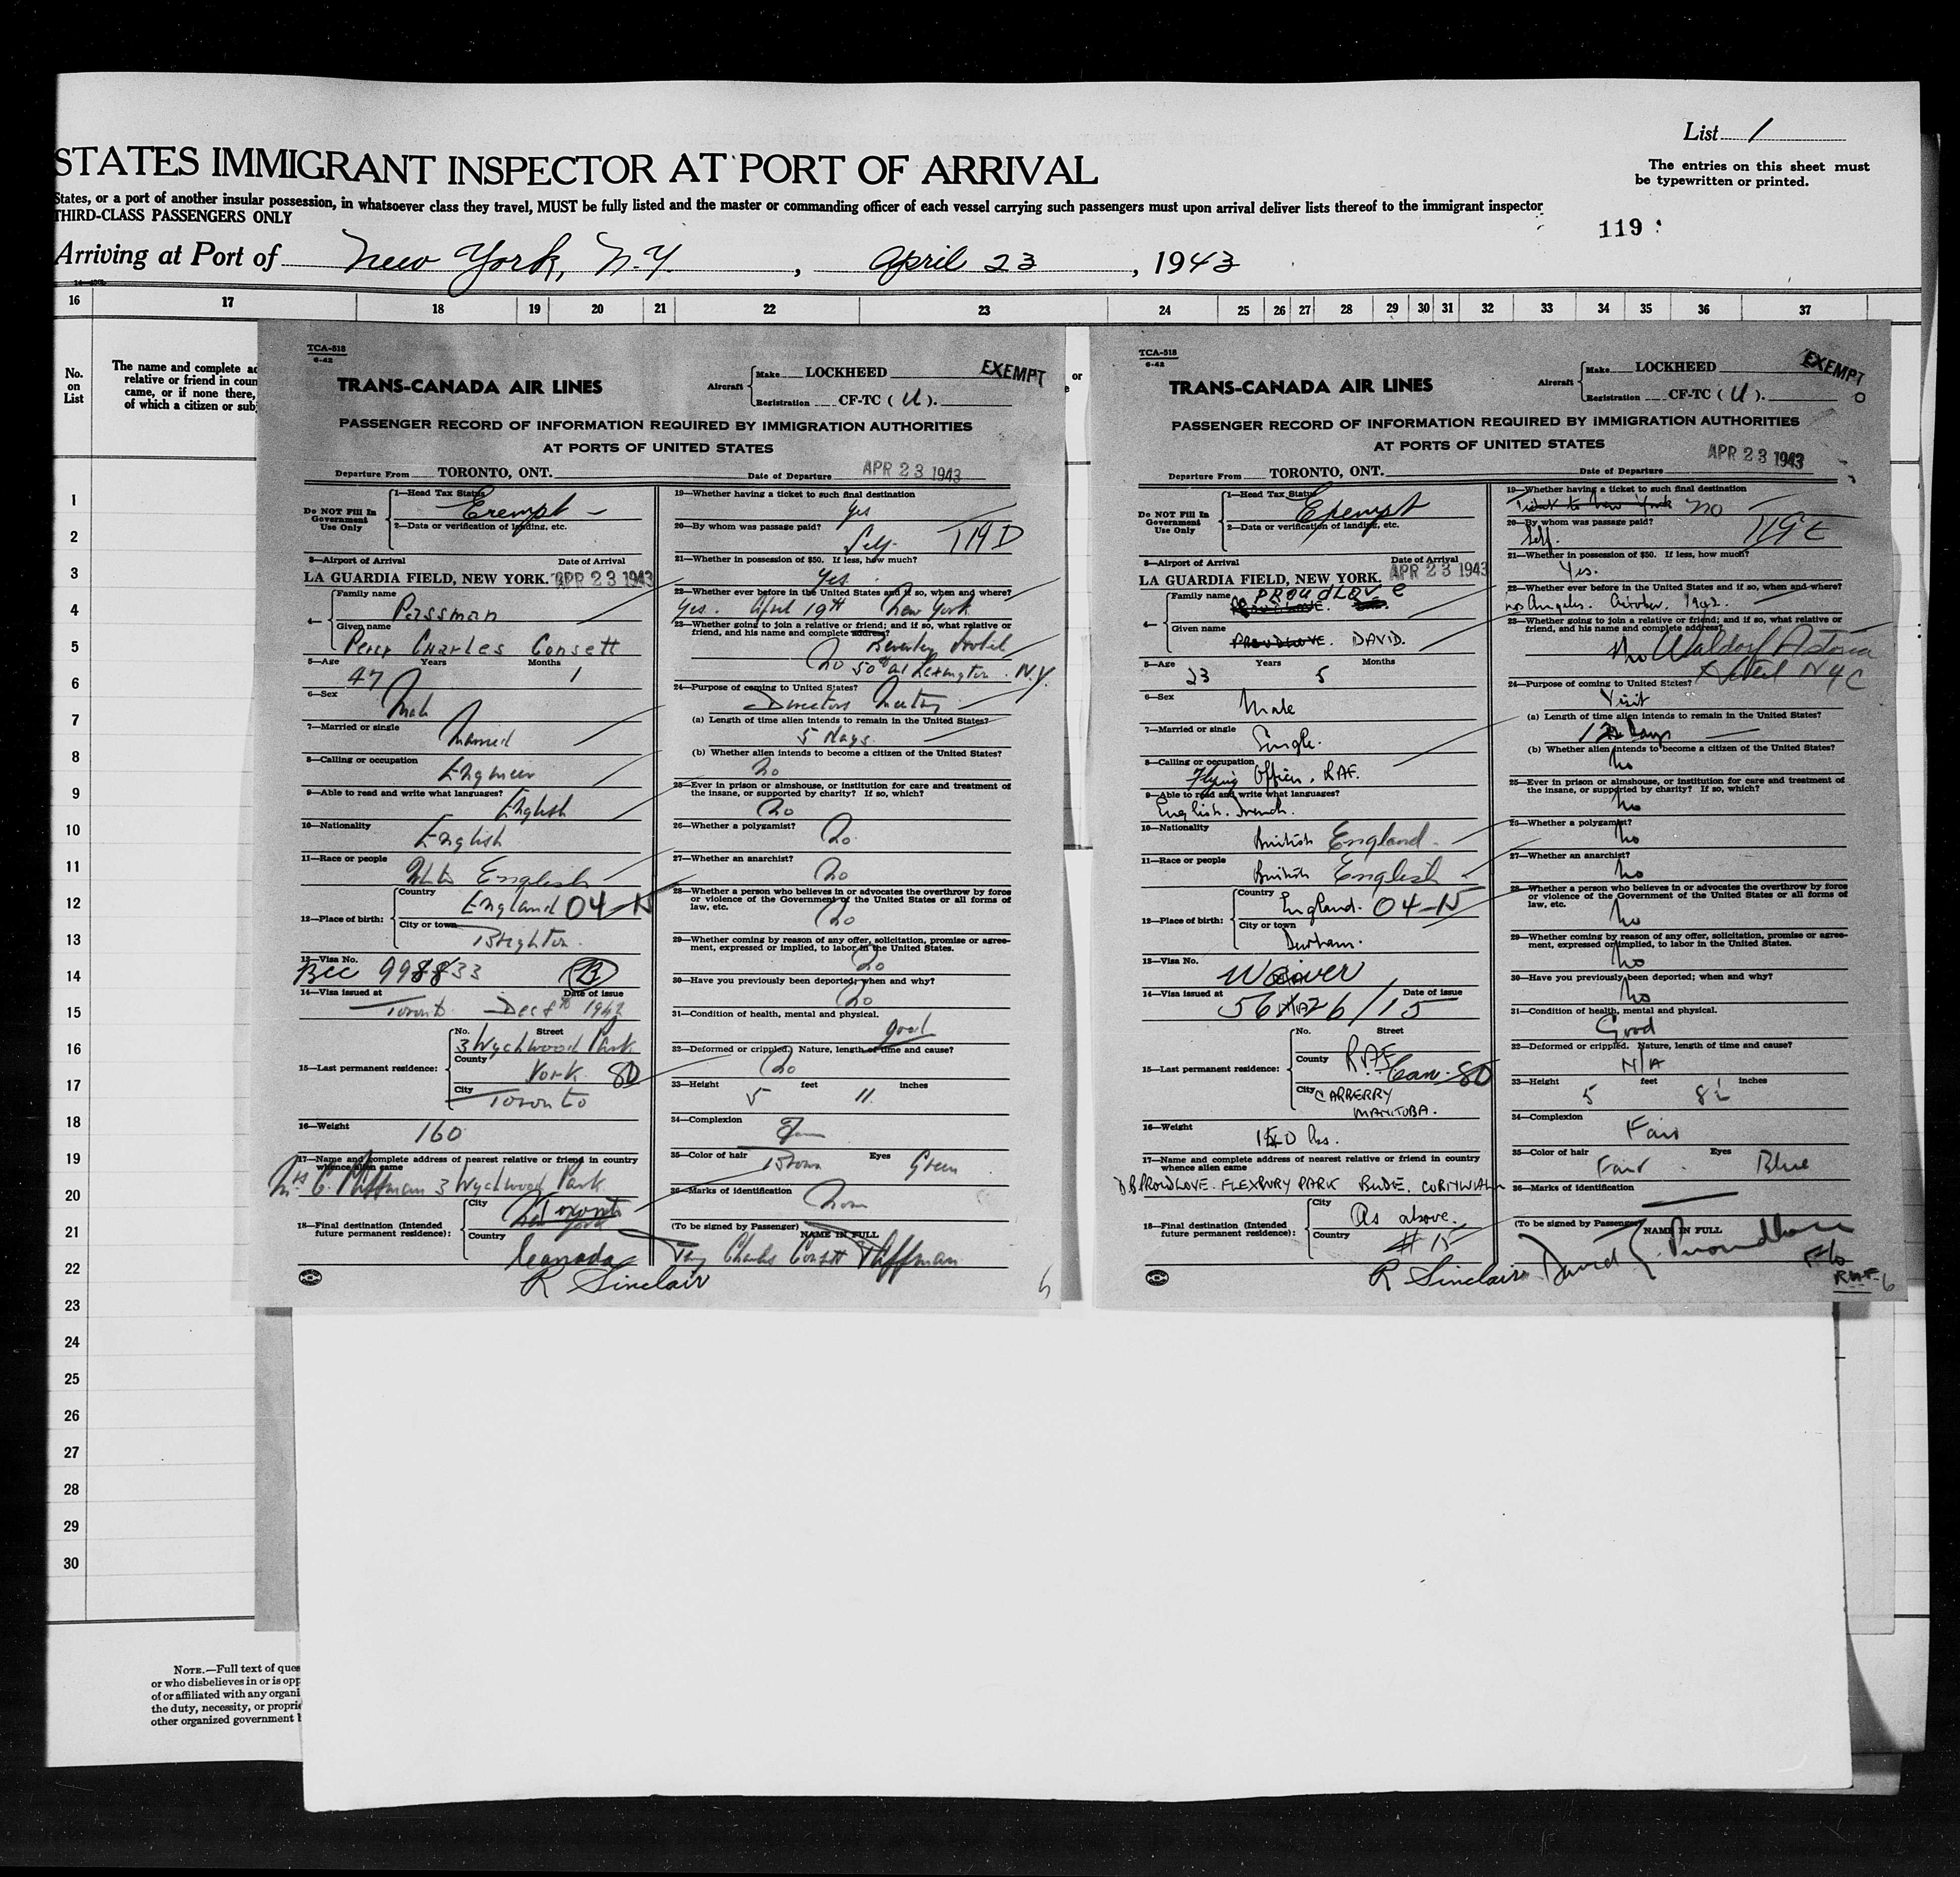 List 1
STATES IMMIGRANT INSPECTOR AT PORT OF ARRIVAL
The entries on this sheet must
be typewritten or printed.
States, or a port of another insular possession, in whatsoever class they travel, MUST be fully listed and the master or commanding officer of each vessel carrying such passengers must upon arrival deliver lists thereof to the immigrant inspector
THIRD-CLASS PASSENGERS ONLY
119
Arriving at Port of New York, N.Y. , April 23 , 1943
16 17 18 19 20 21 22 23 24 25 26 27 28 29 30 31 32 33 34 35 36 37
No.
on
List
The name and complete ad
relative or friend in coun
came, or if none there,
of which a citizen or subj
or
1
2
3
4
5
6
7
8
9
10
11
12
13
14
15
16
17
18
19
20
21
22
23
24
25
26
27
28
29
30
TCA-518
6-42
TRANS-CANADA AIR LINES
Aircraft
Make LOCKHEED
Registration CF-TC ( U ).
EXEMPT
PASSENGER RECORD OF INFORMATION REQUIRED BY IMMIGRATION AUTHORITIES
AT PORTS OF UNITED STATES
Departure From TORONTO, ONT. Date of Departure APR 23 1943
Do NOT Fill In
Government
Use Only
1—Head Tax Status
Exempt
2—Data or verification of landing, etc.
3—Airport of Arrival Date of Arrival
LA GUARDIA FIELD, NEW YORK. APR 23 1943
4—
Family name
Given name
Percy Charles Consett
5—Age Years Months
47 1
6—Sex
Male
7—Married or single
Married
8—Calling or occupation
Engineer
9—Able to read and write what languages?
English
10—Nationality
English
11—Race or people
English
12—Place of birth:
Country
England 04-N
City or town
Brighton.
13—Visa No.
BCC 998833 B
14—Visa issued at Date of issue
Toronto Dec 8th 1942
15—Last permanent residence:
No. Street
3 Wychwood Park
County
York 80
City
Toronto
16—Weight
160
17—Name and complete address of nearest relative or friend in country
whence alien came
Mrs C. 3 Wychwood Park
18—Final destination (Intended
future permanent residence):
City
Toronto
New York
Country
Canada
R Sinclair
19—Whether having a ticket to such final destination
Yes
20—By whom was passage paid?
Self.
21—Whether in possession of $50. If less, how much?
Yes.
22—Whether ever before in the United States and if so, when and where?
Yes. April 19th New York
23—Whether going to join a relative or friend; and if so, what relative or
friend, and his name and complete address?
Beverley Hotel
No 50th at Lexington. N.Y.
24—Purpose of coming to United States?
Directors Meeting
(a) Length of time alien intends to remain in the United States?
5 days.
(b) Whether alien intends to become a citizen of the United States?
No
25—Ever in prison or almshouse, or institution for care and treatment of
the insane, or supported by charity? If so, which?
No
26—Whether a polygamist?
No
27—Whether an anarchist?
No
28—Whether a person who believes in or advocates the overthrow by force
or violence of the Government of the United States or all forms of
law, etc.
No
29—Whether coming by reason of any offer, solicitation, promise or agree-
ment, expressed or implied, to labor in the United States.
No
30—Have you previously been deported; when and why?
No
31—Condition of health, mental and physical.
good
32—Deformed or crippled. Nature, length of time and cause?
No
33—Height feet inches
5 11
34—Complexion
35—Color of hair Eyes
Brown Green
36—Marks of identification
None
(To be signed by Passenger) NAME IN FULL
Charles Consett
6
TCA-518
6-42
TRANS-CANADA AIR LINES
Aircraft
Make LOCKHEED
Registration CF-TC ( U ).
EXEMPT
PASSENGER RECORD OF INFORMATION REQUIRED BY IMMIGRATION AUTHORITIES
AT PORTS OF UNITED STATES
Departure From TORONTO, ONT. Date of Departure APR 23 1943
Do NOT Fill In
Government
Use Only
1—Head Tax Status
Exempt
2—Data or verification of landing, etc.
3—Airport of Arrival Date of Arrival
LA GUARDIA FIELD, NEW YORK. APR 23 1943
4—
Family name
PROUDLOVE
Given name
PROUDLOVE. DAVID.
5—Age Years Months
23 5
6—Sex
Male
7—Married or single
Single.
8—Calling or occupation
Flying Officer. RAF.
9—Able to read and write what languages?
English. French.
10—Nationality
British England
11—Race or people
British English
12—Place of birth:
Country
England. 04-N
City or town
Durham.
13—Visa No.
Waiver
14—Visa issued at Date of issue
15—Last permanent residence:
No. Street
County
R.A.F. Can-80
City
CARBERRY
MANITOBA.
16—Weight
lbs.
17—Name and complete address of nearest relative or friend in country
whence alien came
D.B PROUDLOVE. FLEXBURY PARK BUDE. CORNWALL
18—Final destination (Intended
future permanent residence):
City
As above.
Country
# 15
R Sinclair
19—Whether having a ticket to such final destination
Ticket to New York no
20—By whom was passage paid?
Self.
21—Whether in possession of $50. If less, how much?
Yes.
22—Whether ever before in the United States and if so, when and where?
Los Angeles. October. 1942.
23—Whether going to join a relative or friend; and if so, what relative or
friend, and his name and complete address?
No Waldorf Astoria
Hotel NYC
24—Purpose of coming to United States?
Visit
(a) Length of time alien intends to remain in the United States?
days
(b) Whether alien intends to become a citizen of the United States?
No
25—Ever in prison or almshouse, or institution for care and treatment of
the insane, or supported by charity? If so, which?
No
26—Whether a polygamist?
No
27—Whether an anarchist?
No
28—Whether a person who believes in or advocates the overthrow by force
or violence of the Government of the United States or all forms of
law, etc.
No
29—Whether coming by reason of any offer, solicitation, promise or agree-
ment, expressed or implied, to labor in the United States.
No
30—Have you previously been deported; when and why?
No
31—Condition of health, mental and physical.
Good
32—Deformed or crippled. Nature, length of time and cause?
N/A
33—Height feet inches
5 8½
34—Complexion
Fair
35—Color of hair Eyes
Fair. Blue
36—Marks of identification
(To be signed by Passenger) NAME IN FULL
David Proudlove
F/O
RAF 6
NOTE.—Full text of ques
or who disbelieves in or is opp
of or affiliated with any organi
the duty, necessity, or proprie
other organized government b